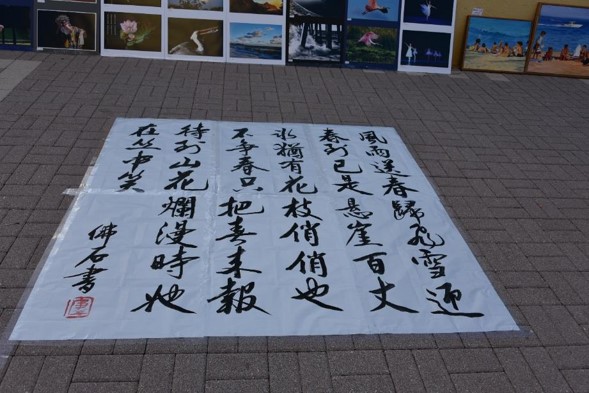 風雨送春歸飛雪迎
春到已是悬崖百丈
冰猶有花枝俏俏也
不争春只把春来報
待到山花爛漫時她
在丛中笑
佛石書